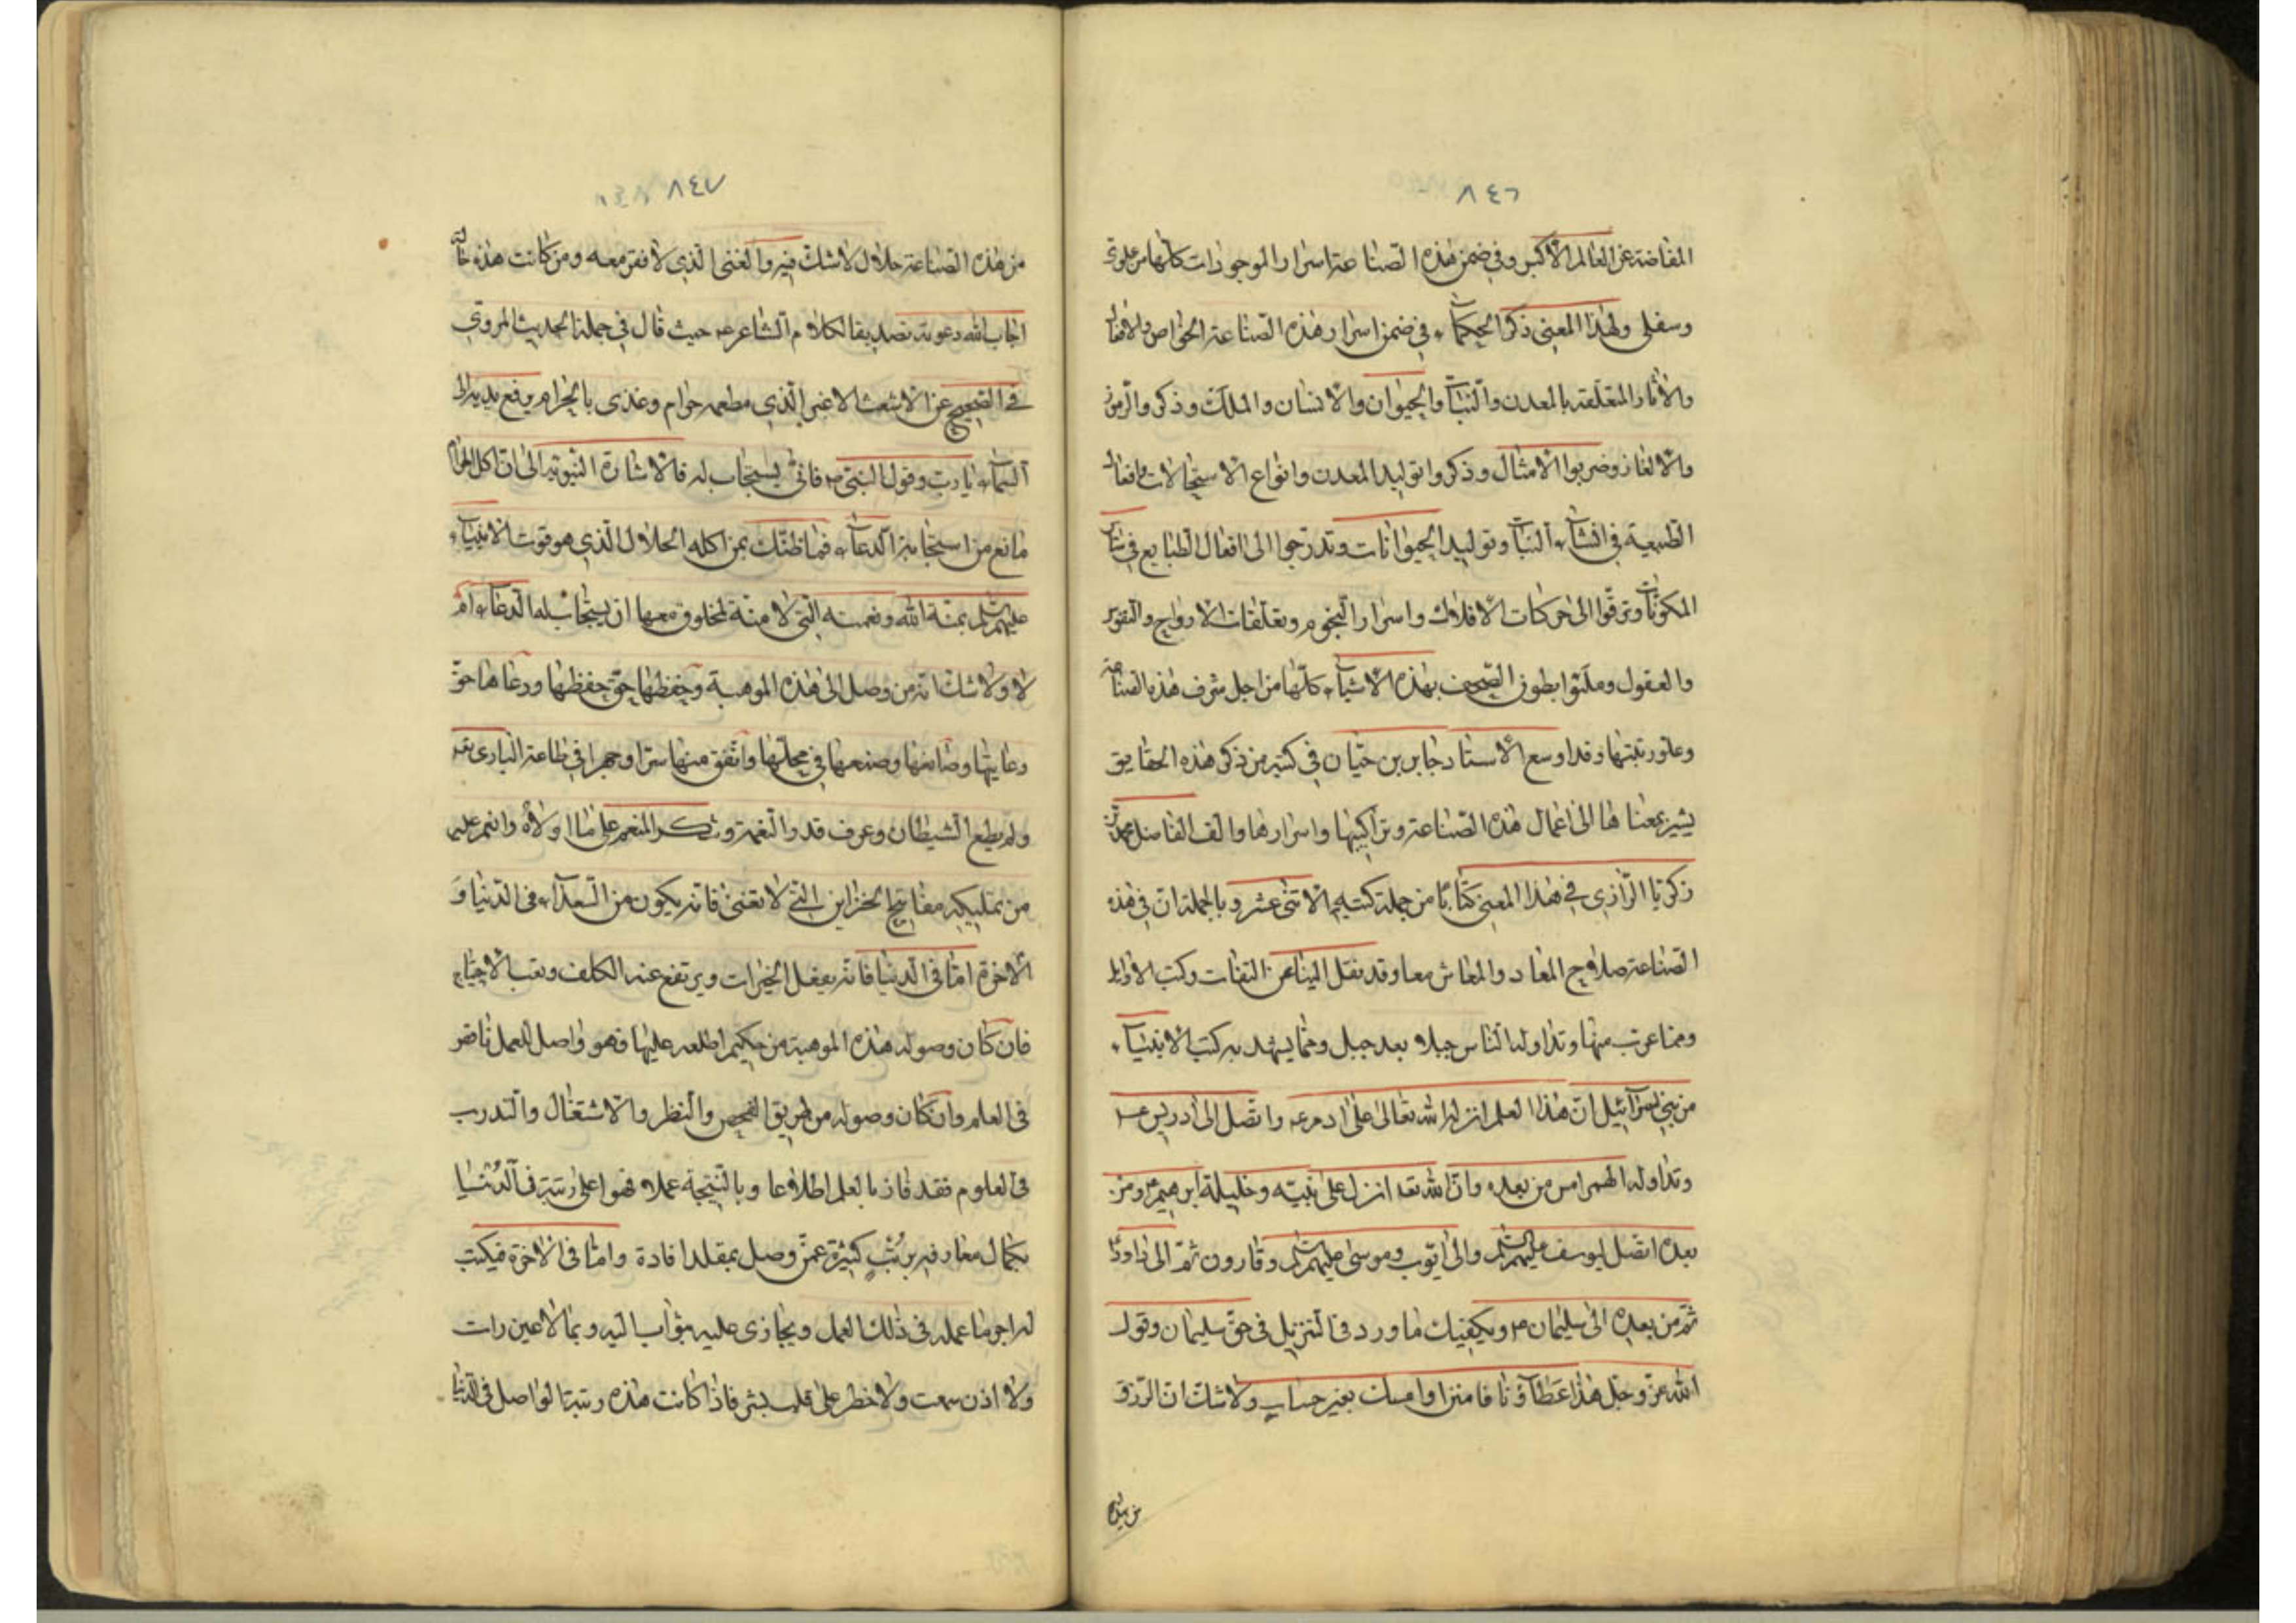 ٨٤٦
المفاضة عن العالم الأكبر وفي ضمن هذه الصناعة اسرار الموجودات كلها من علوي
وسفلي ولهذا المعنى ذكر الحكماء في ضمن اسرار هذه الصناعة الخواص والافعال
والأثار المتعلقة بالمعدن والنبات والحيوان والانسان والملك وذكروا الرموز
والالغاز وضربوا الأمثال وذكروا توليد المعدن وانواع الاستحالات وافعال
الطبيعية في انشاء النبات وتوليد الحيوانات وتدرجوا الى افعال الطبايع في سائر
المكونات وترقوا الى حركات الافلاك واسرار النجوم وتعلقات الارواح والنفوس
والعقول وملئوا بطون الصحف بهذه الاشياء كلها من اجل شرف هذه الصناعة
وعلو رتبتها وقد اوسع الأستاد جابر بن حيان في كتبه من ذكر هذه الحقايق
يشير بمعناها الى اعمال هذه الصناعة وتراكيبها واسرارها والف الفاضل محمد بن
زكريا الرازي في هذا المعنى كتابا من جملة كتبه الاثنى عشر وبالجملة ان في هذه
الصناعة صلاح المعاد والمعاش معا وقد نقل الينا عن الثقات وكتب الاوايل
ومما عرب منها وتداولها الناس جيلا بعد جيل ومما يشهد به كتب الانبياء
من بني اسرآئيل ان هذا العلم انزله الله تعالى على ادم ع واتصل الى ادريس ع
وتداوله الهرامس من بعده وان الله تعـ انزل على نبيه وخليله ابرهيم ع ومن
بعده اتصل ليوسف عليهم السلام والى ايوب وموسى عليهم السلم وقارون ثم الى داود ع
ثم من بعده الى سليمان ع ويكفيك ما ورد في التنزيل في حق سليمان وقول
الله عز وجل هذا عطآؤنا فامنن او امسك بغير حساب ولا شك ان الرزق
٨٤٧
من هذه الصناعة حلال لا شك فيه والغنى الذي لا فقر معه ومن كانت هذه حاله
اجاب الله دعوته تصديقا لكلام الشارع ع حيث قال في جملة الحديث المروي
في الصحيح عن الاشعث الاغبر الذي مطعمه حرام وغذى بالحرام يرفع يديه الى
السماء يا رب وقول النبي ص فانى يستجاب له فالاشارة النبوية الى ان اكل الحرام
مانع من استجابة الدعاء فما ظنك بمن اكله الحلال الذي هو قوت الانبياء
عليهم السلم بمنة الله ونعمته التي لا منة لمخلوق معها ان يستجاب له الدعاء ام
لا ولا شك انه من وصل الى هذه الموهبة وحفظها حق حفظها ورعاها حق
رعايتها وصانها وصنعها في محلها وانفق منها سرا وجهرا في طاعة البارى تعـ
ولم يطع الشيطان وعرف قدر النعمة وشكر المنعم على ما اولاه وانعم عليه
من تمليكه مفاتيح الخزاين التي لا تفنى فانه يكون من السعدآء في الدنيا و
الآخرة اما في الدنيا فانه يفعل الخيرات ويرتفع عنه الكلف وتعب الاحتياج
فان كان وصوله هذه الموهبة من حكيم اطلعه عليها فهو واصل للعمل ناقص
في العلم وان كان وصوله من طريق الفحص والنظر والاشتغال والتدرب
في العلوم فقد فاز بالعلم اطلاعا وبالنتيجة عملا فهو اعلى رتبة في الدنيا
بكمال معارفه برتب كثيرة عمن وصل بمقلد افاده واما في الاخرة فيكتب
له اجر ما عمله في ذلك العمل ويجازى عليه بثواب اليه وبما لا عين رات
ولا اذن سمعت ولا خطر على قلب بشر فاذا كانت هذه رتبة الواصل في الدنيا